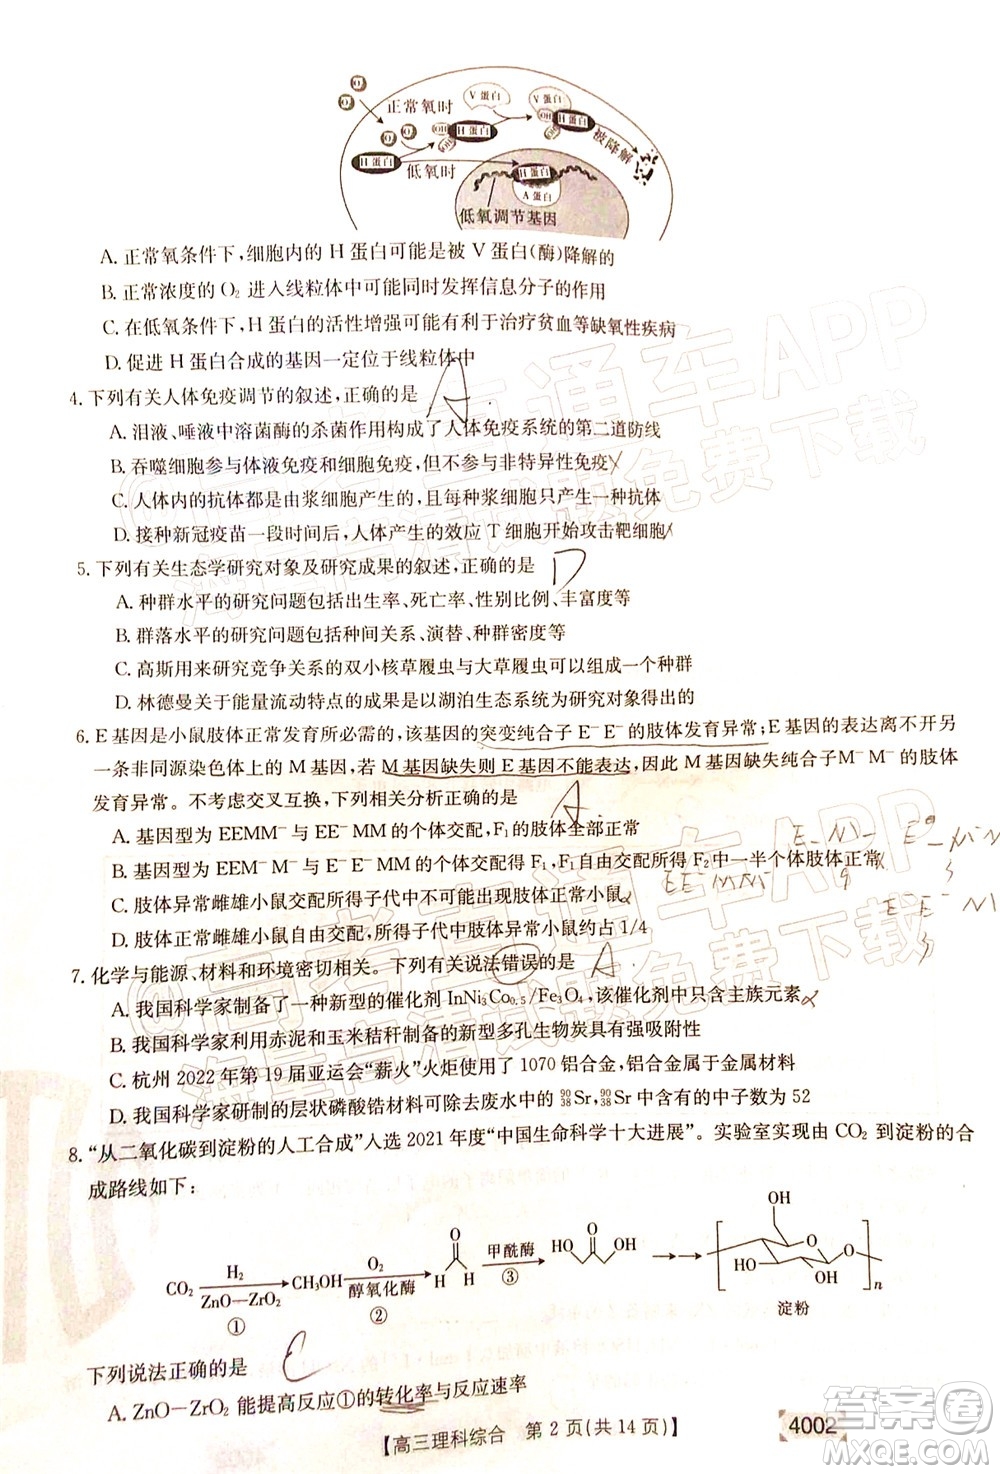 O₂
O₂
正常氧时
V 蛋白
V 蛋白
O₂
O₂
OH
OH
H 蛋白
OH
OH
H 蛋白
被降解
H 蛋白
低氧时
H 蛋白
A 蛋白
低氧调节基因
A. 正常氧条件下,细胞内的 H 蛋白可能是被 V 蛋白(酶)降解的
B. 正常浓度的 O₂ 进入线粒体中可能同时发挥信息分子的作用
C. 在低氧条件下,H 蛋白的活性增强可能有利于治疗贫血等缺氧性疾病
D. 促进 H 蛋白合成的基因一定位于线粒体中
4. 下列有关人体免疫调节的叙述,正确的是 A
A. 泪液、唾液中溶菌酶的杀菌作用构成了人体免疫系统的第二道防线
B. 吞噬细胞参与体液免疫和细胞免疫,但不参与非特异性免疫
C. 人体内的抗体都是由浆细胞产生的,且每种浆细胞只产生一种抗体
D. 接种新冠疫苗一段时间后,人体产生的效应 T 细胞开始攻击靶细胞
5. 下列有关生态学研究对象及研究成果的叙述,正确的是 D
A. 种群水平的研究问题包括出生率、死亡率、性别比例、丰富度等
B. 群落水平的研究问题包括种间关系、演替、种群密度等
C. 高斯用来研究竞争关系的双小核草履虫与大草履虫可以组成一个种群
D. 林德曼关于能量流动特点的成果是以湖泊生态系统为研究对象得出的
6. E 基因是小鼠肢体正常发育所必需的,该基因的突变纯合子 E⁻E⁻的肢体发育异常;E 基因的表达离不开另
一条非同源染色体上的 M 基因,若 M 基因缺失则 E 基因不能表达,因此 M 基因缺失纯合子 M⁻M⁻的肢体
发育异常。不考虑交叉互换,下列相关分析正确的是 A
A. 基因型为 EEMM⁻与 EE⁻MM 的个体交配,F₁ 的肢体全部正常
B. 基因型为 EEM⁻M⁻与 E⁻E⁻MM 的个体交配得 F₁,F₁ 自由交配所得 F₂ 中一半个体肢体正常
C. 肢体异常雌雄小鼠交配,所得子代中不可能出现肢体正常小鼠
D. 肢体正常雌雄小鼠自由交配,所得子代中肢体正常小鼠约占 1/4
7. 化学与能源、材料和环境密切相关。下列有关说法错误的是 A
A. 我国科学家制备了一种新型的催化剂 InNi₃Co₀.₅/Fe₃O₄,该催化剂中只含主族元素
B. 我国科学家利用赤泥和玉米秸秆制备的新型多孔生物炭具有强吸附性
C. 杭州 2022 年第 19 届亚运会“薪火”火炬使用了 1070 铝合金,铝合金属于金属材料
D. 我国科学家研制的层状磷酸锆材料可除去废水中的 ⁹⁰₃₈Sr,⁹⁰₃₈Sr 中含有的中子数为 52
8. “从二氧化碳到淀粉的人工合成”入选 2021 年度“中国生命科学十大进展”。实验室实现由 CO₂ 到淀粉的合
成路线如下:
CO₂ H₂ ZnO—ZrO₂ ① CH₃OH O₂ 醇氧化酶 ② O H H 甲酰酶 ③ HO O OH OH O O HO OH n
淀粉
下列说法正确的是 C
A. ZnO—ZrO₂ 能提高反应①的转化率与反应速率
【高三理科综合 第 2 页(共 14 页)】
4002
@高考直通车APP
海量高清试题免费下载
@高考直通车APP
海量高清试题免费下载
答案圈
MXQE.COM